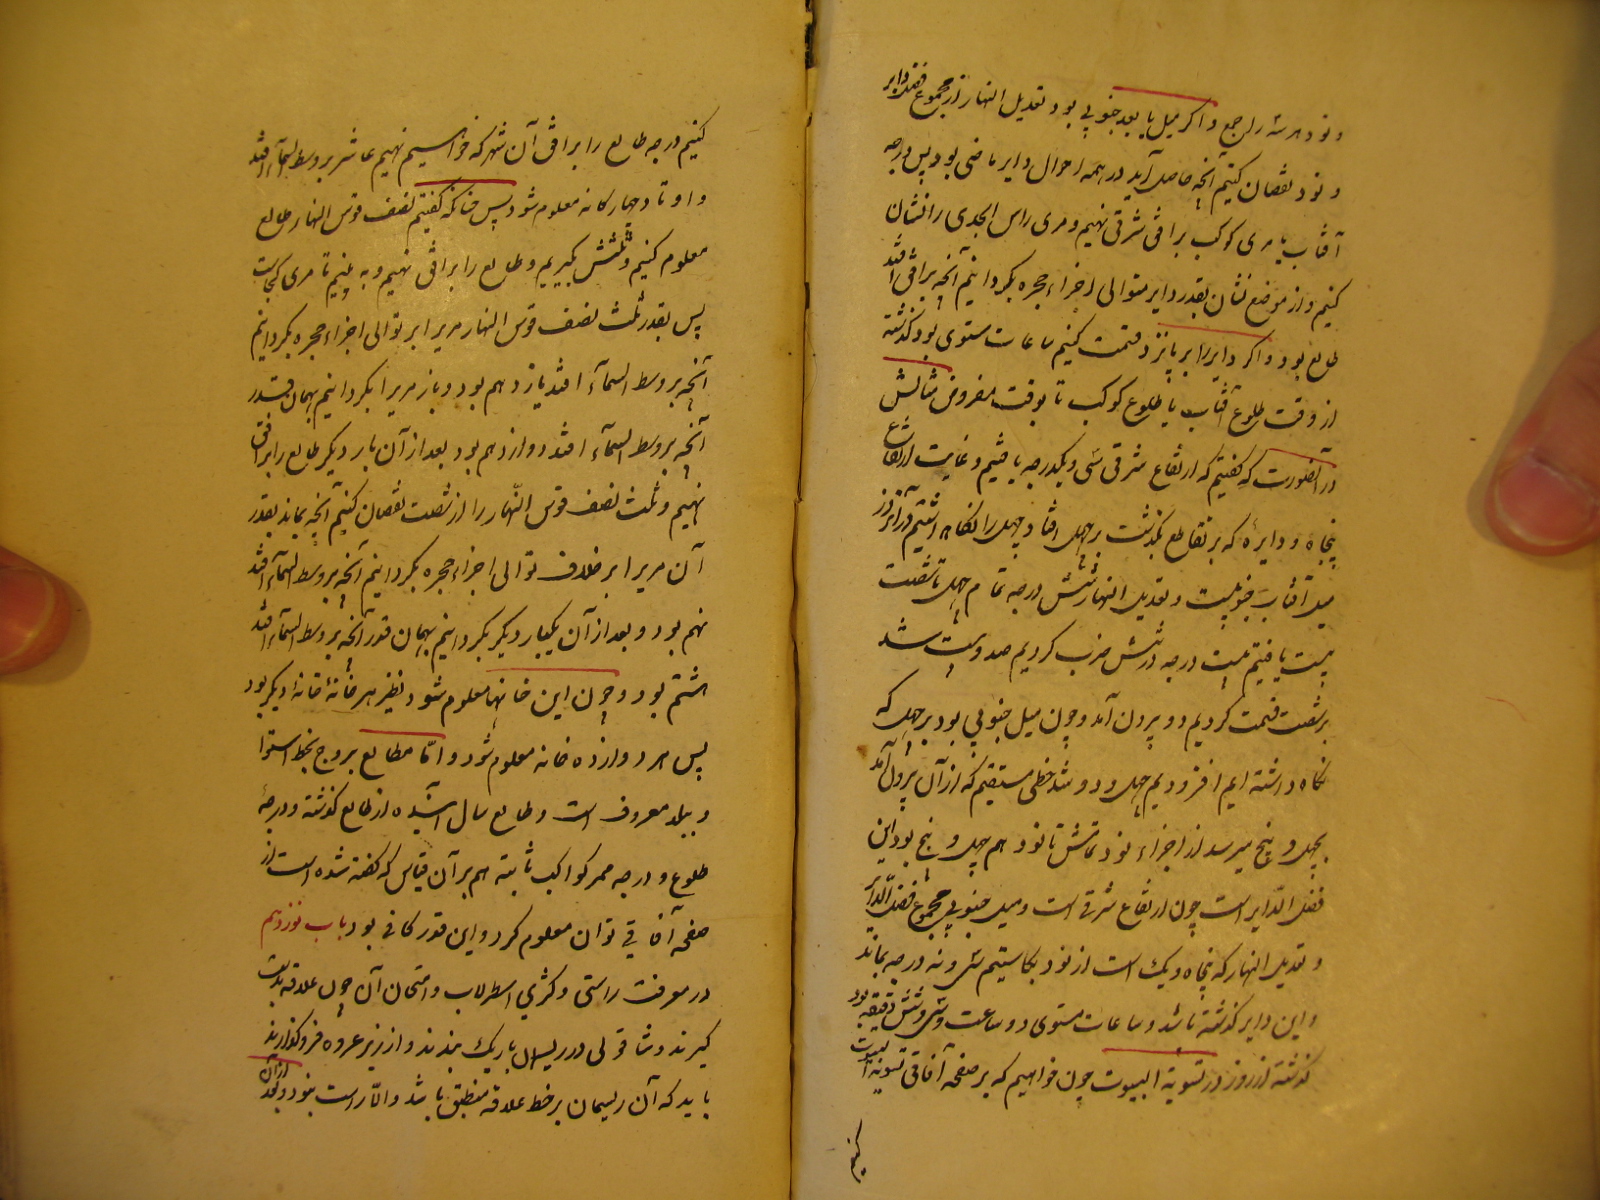 و نود هر سه را جمع و اگر میل یا بعد جنوبی بود تعدیل النهار از مجموع فضل دایر
و نود نقصان کنیم آنچه حاصل آید در همه احوال دایر ماضی بود پس درجه
آفتاب یا مری کوکب بر افق شرقی نهیم و مری راس الجدی را نشان
کنیم و از موضع نشان بقدر دایر متوالی اجزاء حجره بگردانیم آنچه بر افق افتد
طالع بود و اگر دایر را بر پانزده قسمت کنیم ساعات مستوی بود گذشته
از وقت طلوع آفتاب یا طلوع کوکب تا بوقت مفروض مثالش
در آنصورت که گفتیم که ارتفاع شرقی سی و یکدرجه یافتیم و غایت ارتفاع
پنجاه و دایرهٔ که بر تقاطع بگذشت بر چهل افتاد چهل را نگاه داشتیم در آنروز
میل آفتاب جنوبیست و تعدیل النهار شش درجه تمام چهل تا شصت
بیست یافتیم بیست درجه در شش ضرب کردیم صد و بیست شد
بر شصت قسمت کردیم دو بیرون آمد و چون میل جنوبی بود بر چهل که
نگاه داشته ایم افزودیم چهل و دو شد خطی مستقیم که از آن بیرون آمد
بچهل و پنج میرسد از اجزاء نود تمامش تا نود هم چهل و پنج بود این
فضل الدایر است چون ارتفاع شرقی است و میل جنوبی مجموع فضل الدایر
و تعدیل النهار که پنجاه و یک است از نود بکاستیم سی و نه درجه بماند
و این دایر گذشته باشد و ساعات مستوی دو ساعت و سی و شش دقیقه بود
گذشته از روز در تسویة البیوت چون خواهیم که بر صفحه آفاقی تسویة البیوت
کنیم
کنیم درجه طالع را بر افق آن شهر که خواسیم نهیم عاشر بر وسط السمآء افتد
و اوتاد چهارکانه معلوم شود پس چنانکه گفتیم نصف قوس النهار طالع
معلوم کنیم و ثلثش بگیریم و طالع را بر افق نهیم و به بینیم تا مری کجاست
پس بقدر ثلث نصف قوس النهار مری را بر توالی اجزاء حجره بگردانیم
آنچه بر وسط السمآء افتد یازدهم بود و باز مری را بگردانیم بهمان قدر
آنچه بر وسط السمآء افتد دوازدهم بود بعد از آن بار دیگر طالع را بر افق
نهیم و ثلث نصف قوس النّهار را از شصت نقصان کنیم آنچه بماند بقدر
آن مری را بر خلاف توالی اجزاء حجره بگردانیم آنچه بر وسط السمآء افتد
نهم بود و بعد از آن یکبار دیگر بگردانیم بهمان قدر آنچه بر وسط السمآء افتد
هشتم بود و چون این خانها معلوم شود نظیر هر خانهٔ خانه ا دیگر بود
پس هر دوازده خانه معلوم شود و امّا مطالع بروج بخط استوا
و ببلد معروف است و طالع سال آینده از طالع گذشته و درجهٔ
طلوع و درجه ممر کواکب ثابته هم بر آن قیاس که گفته شده است از
صفحه آفاقی توان معلوم کرد و این قدر کافی بود باب نوزدهم
در معرفت راستی و کژی اسطرلاب و امتحان آن چون علاقه بدست
گیرند و شاقولی در ریسمان باریک بندند و از زیر عروه فرو گذارند
باید که آن ریسمان بر خط علاقه منطبق باشد و الّا راست نبود و بعد از آن